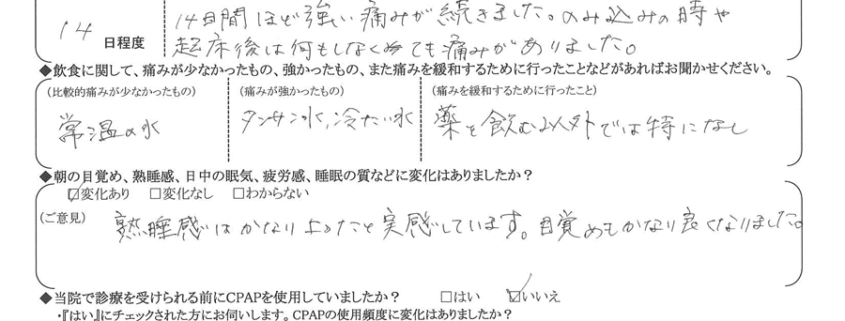 14日間ほど強い痛みが続きました。のみ込みの時や
14 日程度 起床後は何もしなくても痛みがありました。
◆飲食に関して、痛みが少なかったもの、強かったもの、また痛みを緩和するために行ったことなどがあればお聞かせください。
(比較的痛みが少なかったもの) (痛みが強かったもの) (痛みを緩和するために行ったこと)
常温の水 タンサン水,冷たい水 薬を飲む以外では特になし
◆朝の目覚め、熟睡感、日中の眠気、疲労感、睡眠の質などに変化はありましたか？
☑変化あり □変化なし □わからない
(ご意見) 熟睡感はかなり上ったと実感しています。目覚めもかなり良くなりました。
◆当院で診療を受けられる前にCPAPを使用していましたか？ □はい ☑いいえ
・『はい』にチェックされた方にお伺いします。CPAPの使用頻度に変化はありましたか？